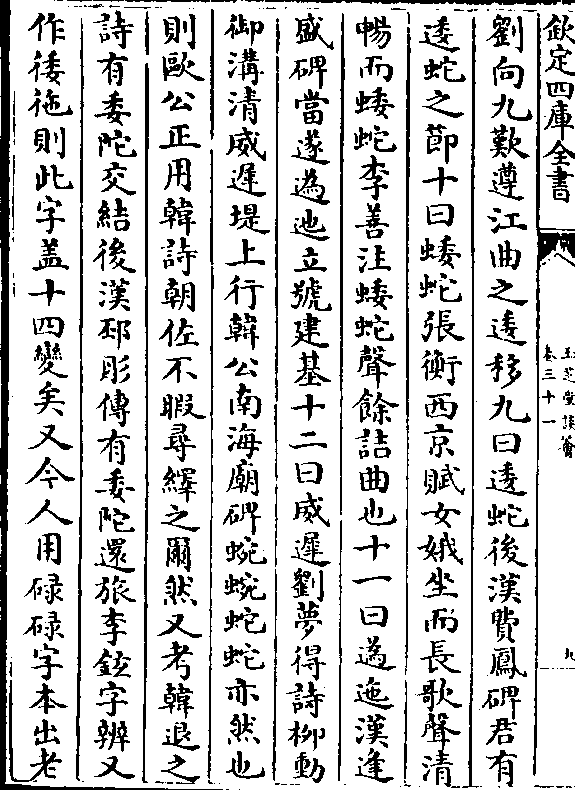 欽定四庫全書
玉芝堂談薈
卷三十一
九
劉向九歎遵江曲之逶移九曰逶蛇後漢費鳳碑君有
逶蛇之節十曰蜲蛇張衡西京賦女娥坐而長歌聲清
暢而蜲蛇李善注蜲蛇聲餘詰曲也十一曰蒍迤漢逢
盛碑當遂蒍迤立號建基十二曰威遲劉夢得詩柳動
御溝清威遲堤上行韓公南海廟碑蜿蜿蛇蛇亦然也
則歐公正用韓詩朝佐不暇尋繹之爾然又考韓退之
詩有委陀交結後漢邳彤傳有委陀還旅李鉉字辨又
作㣲㣲則此字蓋十四變矣又今人用碌碌字本出老